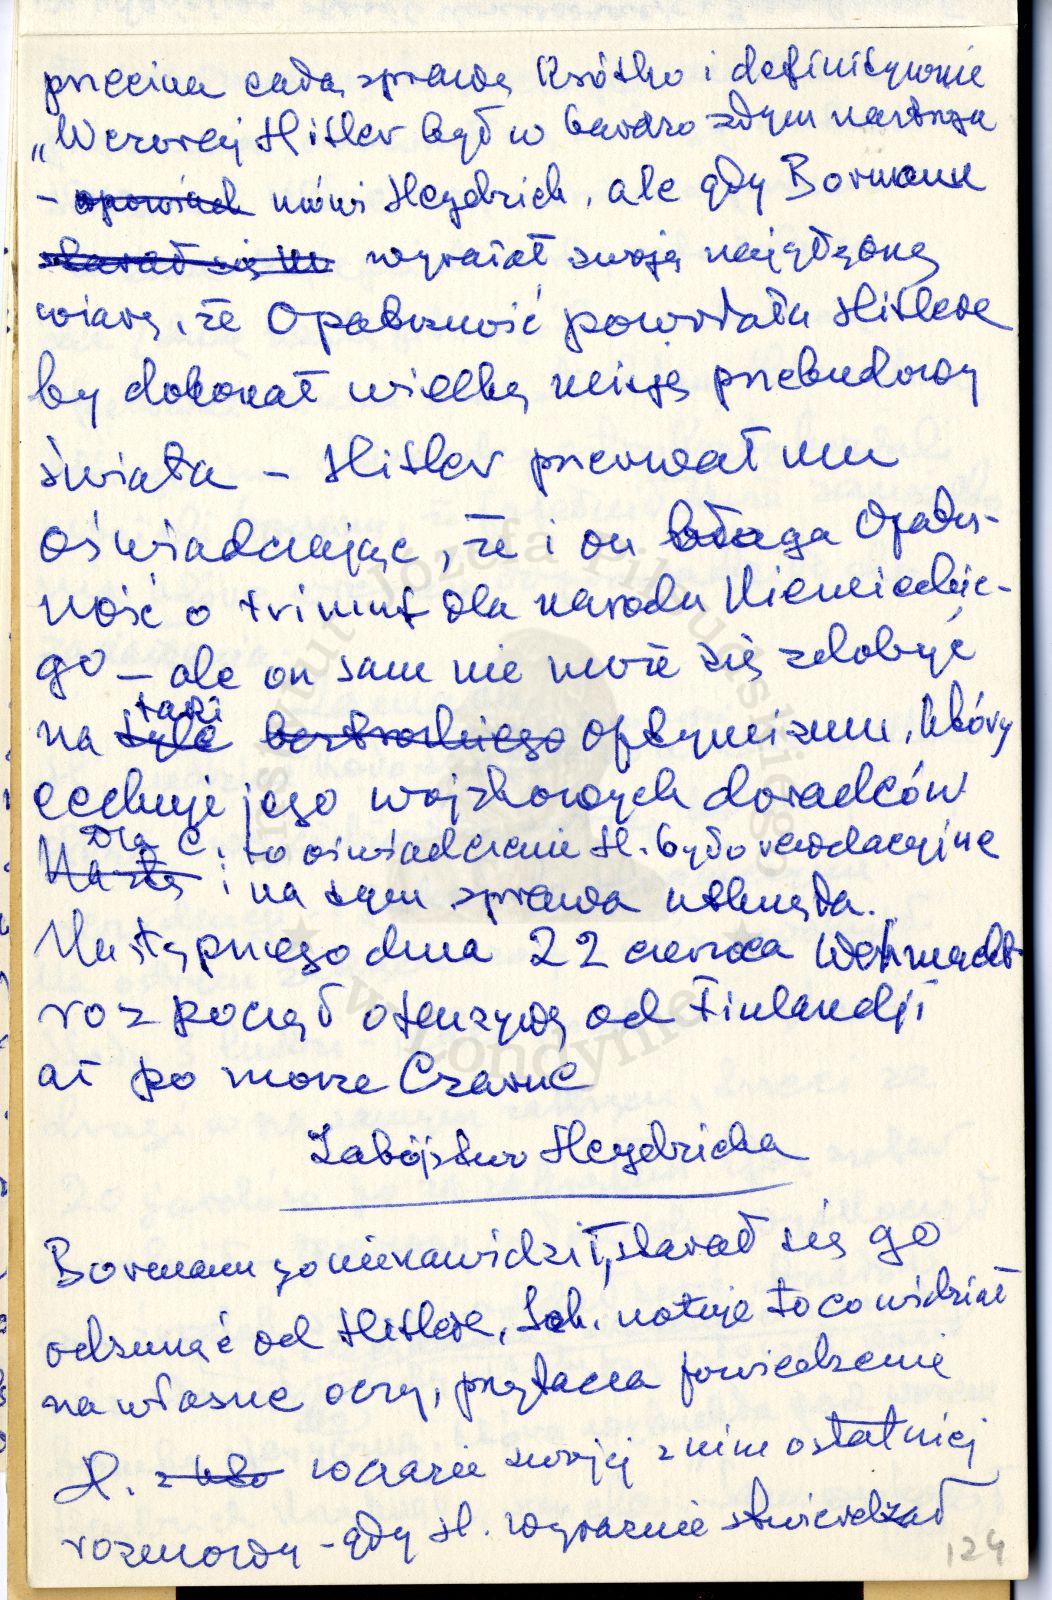 przecina całą sprawę krótko i definitywnie
„Wczoraj Hitler był w bardzo złym nastroju
– opowiada mówi Heydrich, ale gdy Bormann
starał się m wyrażał swoją niezgłębioną
wiarę, że Opatrzność powołała Hitlera
by dokonał wielką misję przebudowy
świata – Hitler przerwał mu
oświadczając, że i on błaga Opatrz-
ność o triumf dla narodu Niemieckie-
go – ale on sam nie może się zdobyć
taki
na tyle beztroskiego optymizmu, który
cechuje jego wojskowych doradców
Dla C. to oświadczenie H. było rewelacyjne
Na tę i na tym sprawa utknęła.
Następnego dnia 22 czerwca Wehrmacht
rozpoczął ofenzywę od Finlandji
aż po morze Czarne
Zabójstwo Heydricha
Bormann go nienawidził, starał się go
odsunąć od Hitlera, Sch. notuje to co widział
na własne oczy, przytacza powiedzenie
H. w czasie swojej z nim ostatniej
rozmowy – gdy H. wyraźnie stwierdzał
124
Instytut Józefa Piłsudskiego
w Londynie